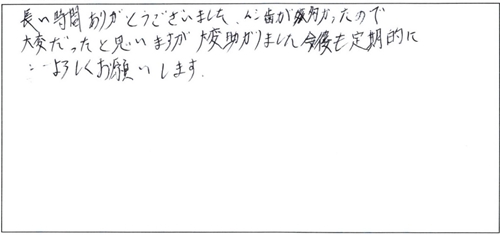 長い時間ありがとうございました、歯が多かったので
大変だったと思いますが大変助かりました今後も定期的に
よろしくお願いします.